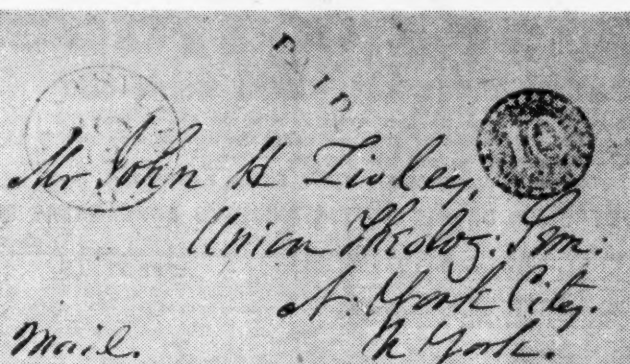 PAID
10
Mr John H Zivley,
Union Theolog: Sem:
N. York City.
N York.
Mail.